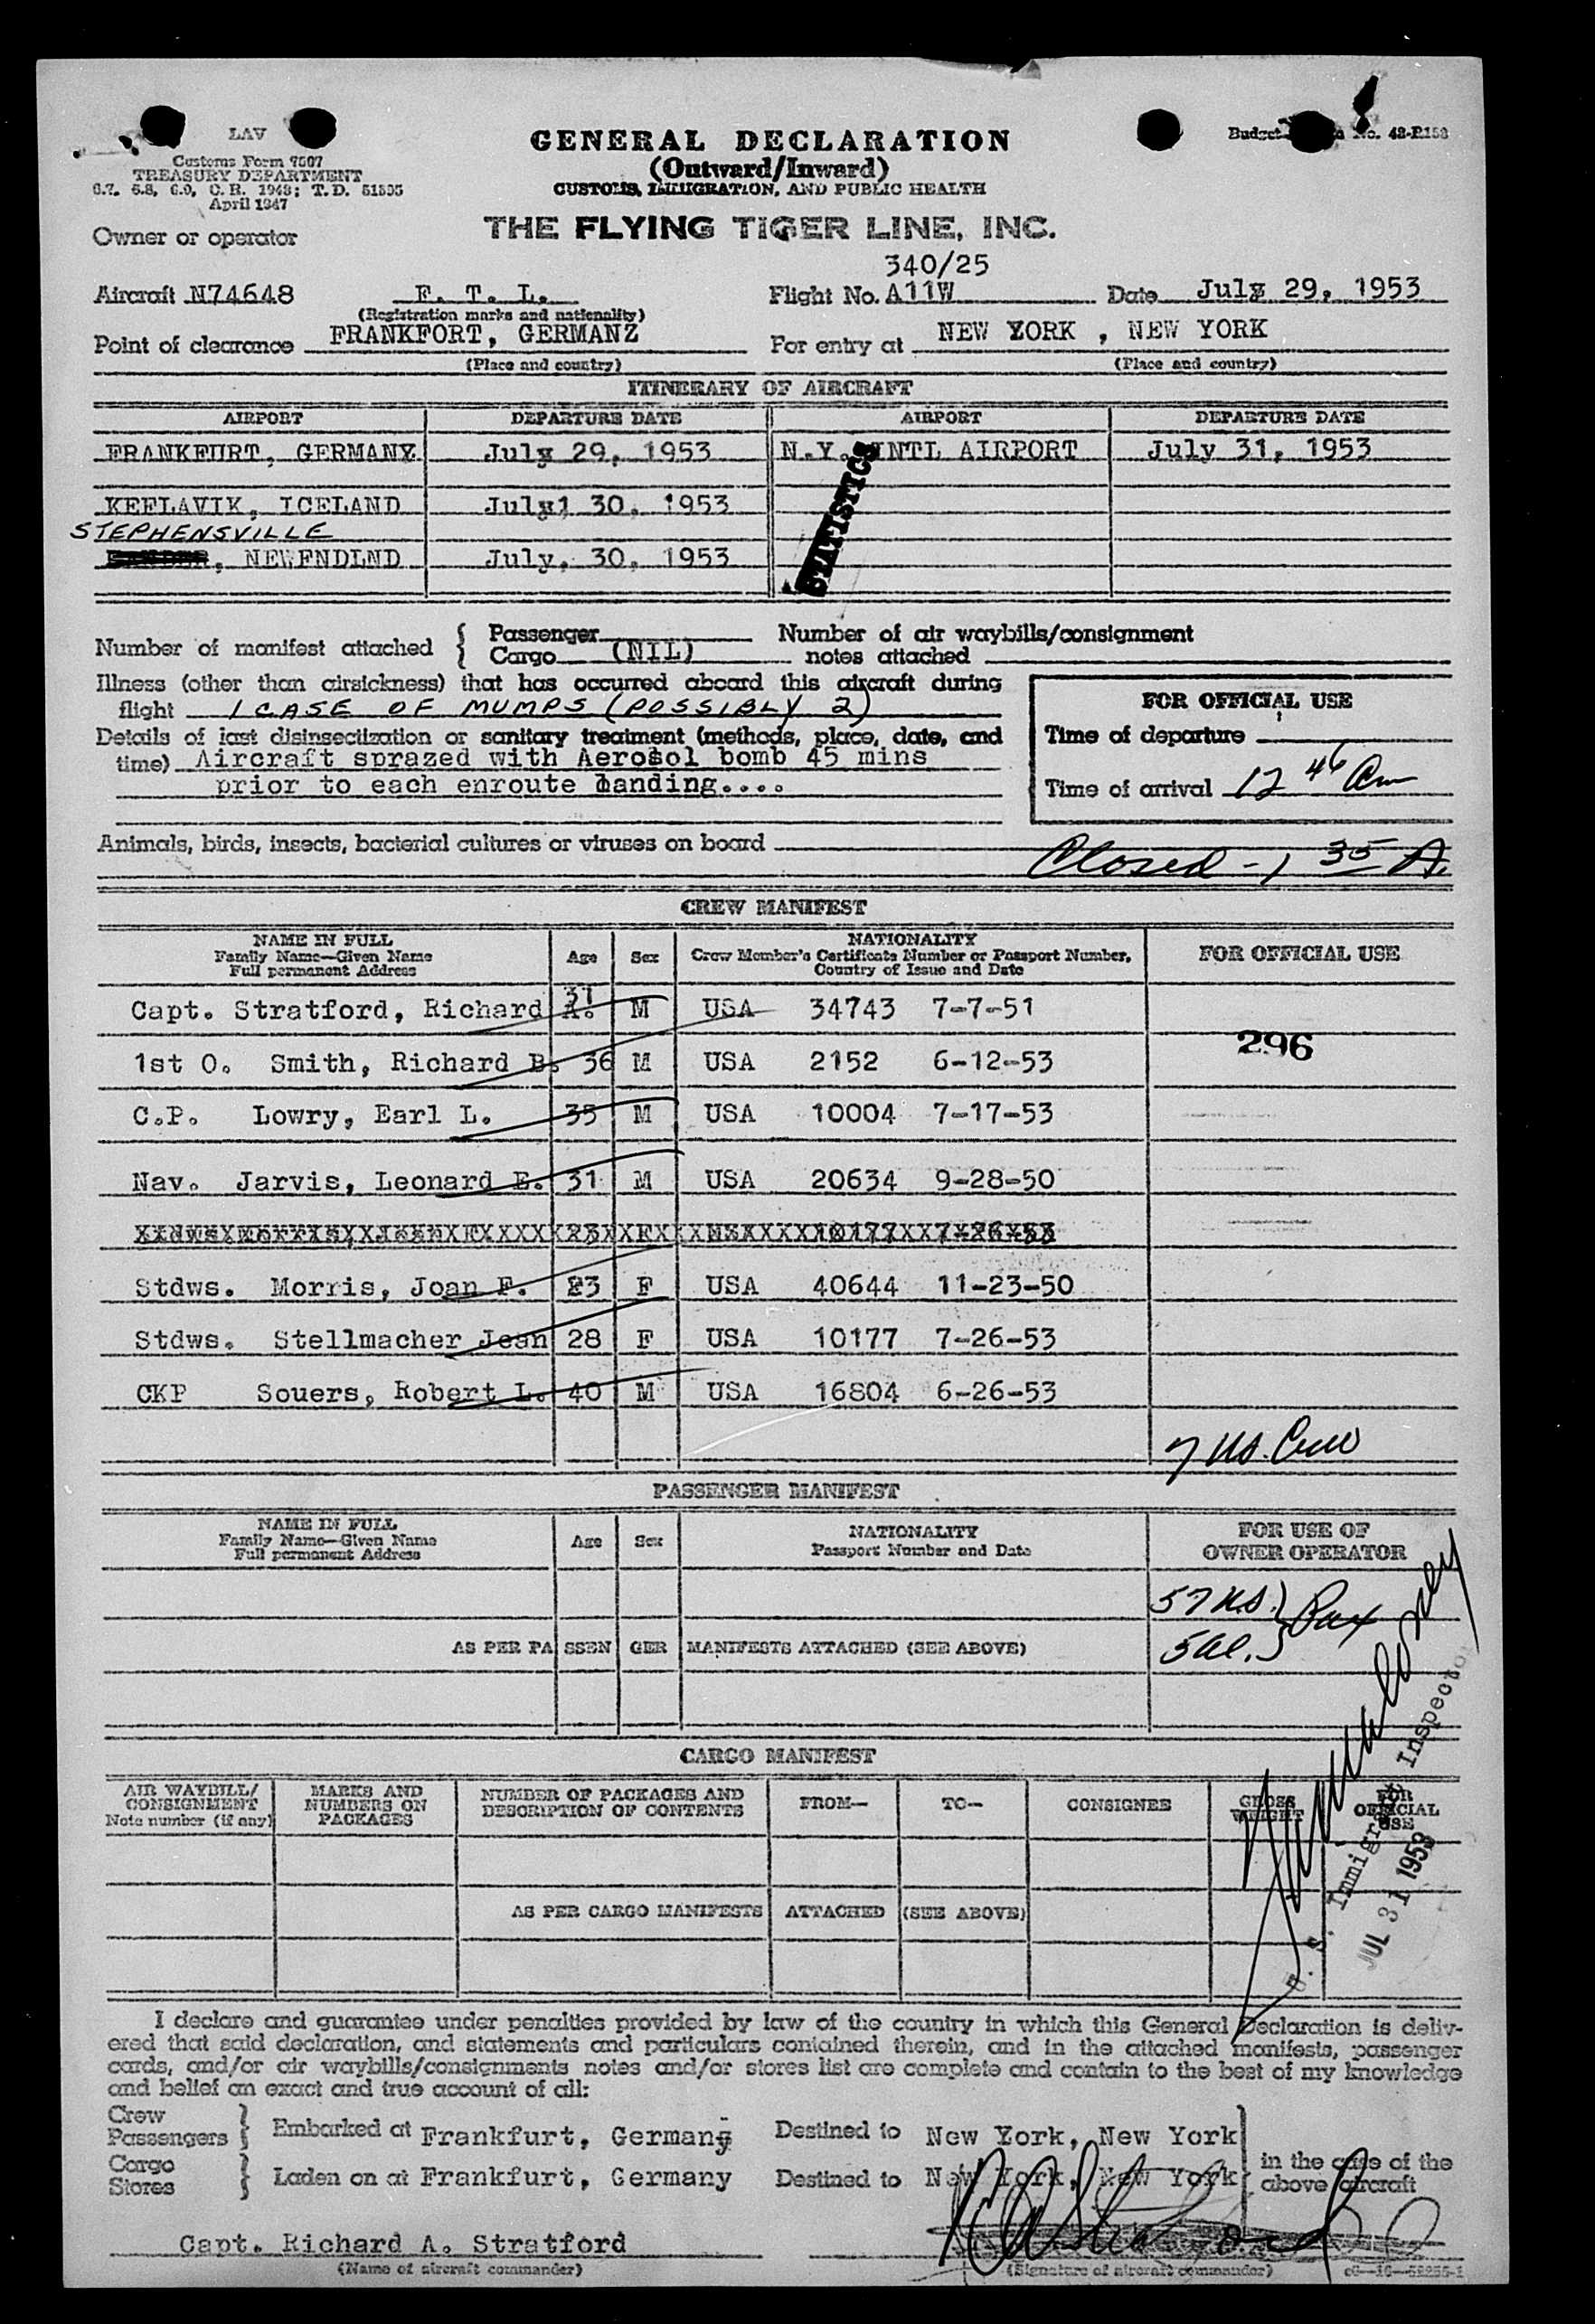 LAV
Customs Form 7507
TREASURY DEPARTMENT
6.7, 6.8, 6.9, C. R. 1943; T. D. 51595
April 1947
Budget No. 43-R153
GENERAL DECLARATION
(Outward/Inward)
CUSTOMS, IMMIGRATION, AND PUBLIC HEALTH
Owner or operator THE FLYING TIGER LINE, INC.
340/25
Aircraft N74648 F. T. L. Flight No. A11W Date July 29, 1953
(Registration marks and nationality)
Point of clearance FRANKFORT, GERMANZ For entry at NEW ZORK , NEW YORK
(Place and country) (Place and country)
ITINERARY OF AIRCRAFT
AIRPORT DEPARTURE DATE AIRPORT DEPARTURE DATE
FRANKFURT, GERMANY July 29, 1953 N.Y. INTL AIRPORT July 31, 1953
KEFLAVIK, ICELAND July 30, 1953
STEPHENSVILLE
, NEWFNDLND July, 30, 1953
STATISTICS
Number of manifest attached { Passenger Number of air waybills/consignment
Cargo (NIL) notes attached
Illness (other than airsickness) that has occurred aboard this aircraft during
flight 1 CASE OF MUMPS (POSSIBLY 2)
Details of last disinsectization or sanitary treatment (methods, place, date, and
time) Aircraft sprazed with Aerosol bomb 45 mins
prior to each enroute landing....
FOR OFFICIAL USE
Time of departure
Time of arrival 12 46 Am
Animals, birds, insects, bacterial cultures or viruses on board
Closed - 1 35 A.
CREW MANIFEST
NAME IN FULL Age Sex NATIONALITY FOR OFFICIAL USE
Family Name—Given Name Crew Member's Certificate Number or Passport Number,
Full permanent Address Country of Issue and Date
Capt. Stratford, Richard A. 37 M USA 34743 7-7-51
296
1st O. Smith, Richard B. 36 M USA 2152 6-12-53
C.P. Lowry, Earl L. 35 M USA 10004 7-17-53
Nav. Jarvis, Leonard E. 31 M USA 20634 9-28-50
Stdws. Morris, Joan F. 23 F USA 40644 11-23-50
Stdws. Stellmacher Jean 28 F USA 10177 7-26-53
CKP Souers, Robert L. 40 M USA 16804 6-26-53
7 US. Crew
PASSENGER MANIFEST
NAME IN FULL Age Sex NATIONALITY FOR USE OF
Family Name—Given Name Passport Number and Date OWNER OPERATOR
Full permanent Address
57 U.S. } Pax
5 al.
AS PER PASSENGER MANIFESTS ATTACHED (SEE ABOVE)
CARGO MANIFEST
AIR WAYBILL/ MARKS AND NUMBER OF PACKAGES AND FROM— TO— CONSIGNEE GROSS FOR
CONSIGNMENT NUMBERS ON DESCRIPTION OF CONTENTS WEIGHT OFFICIAL
Note number (if any) PACKAGES USE
AS PER CARGO MANIFESTS ATTACHED (SEE ABOVE)
U. S. Immigrant Inspector
JUL 31 1953
I declare and guarantee under penalties provided by law of the country in which this General Declaration is deliv-
ered that said declaration, and statements and particulars contained therein, and in the attached manifests, passenger
cards, and/or air waybills/consignments notes and/or stores list are complete and contain to the best of my knowledge
and belief an exact and true account of all:
Crew
Passengers } Embarked at Frankfurt, Germany Destined to New York, New York
Cargo
Stores } Laden on at Frankfurt, Germany Destined to New York, New York
in the case of the
above aircraft
Capt. Richard A. Stratford R A Stratford
(Name of aircraft commander) (Signature of aircraft commander)